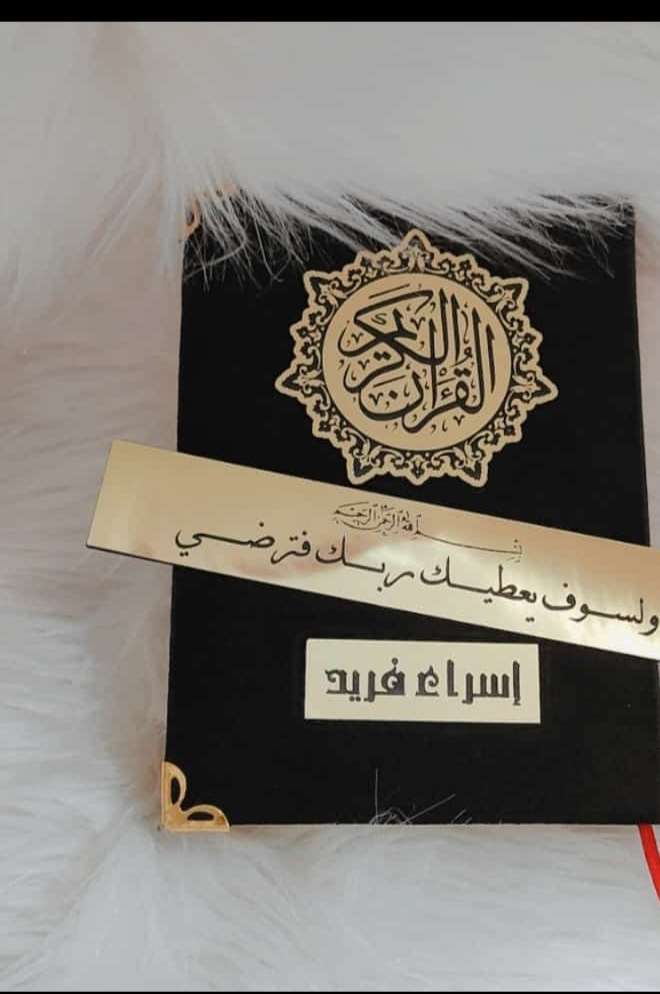 القرآن الكريم
بسم الله الرحمن الرحيم
ولسوف يعطيك ربك فترضي
إسراء فريد